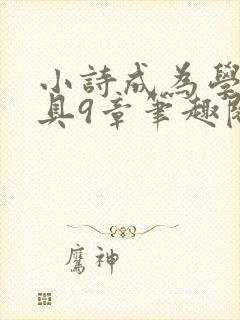 小詩成為學
具9章筆趣閣
鷹神